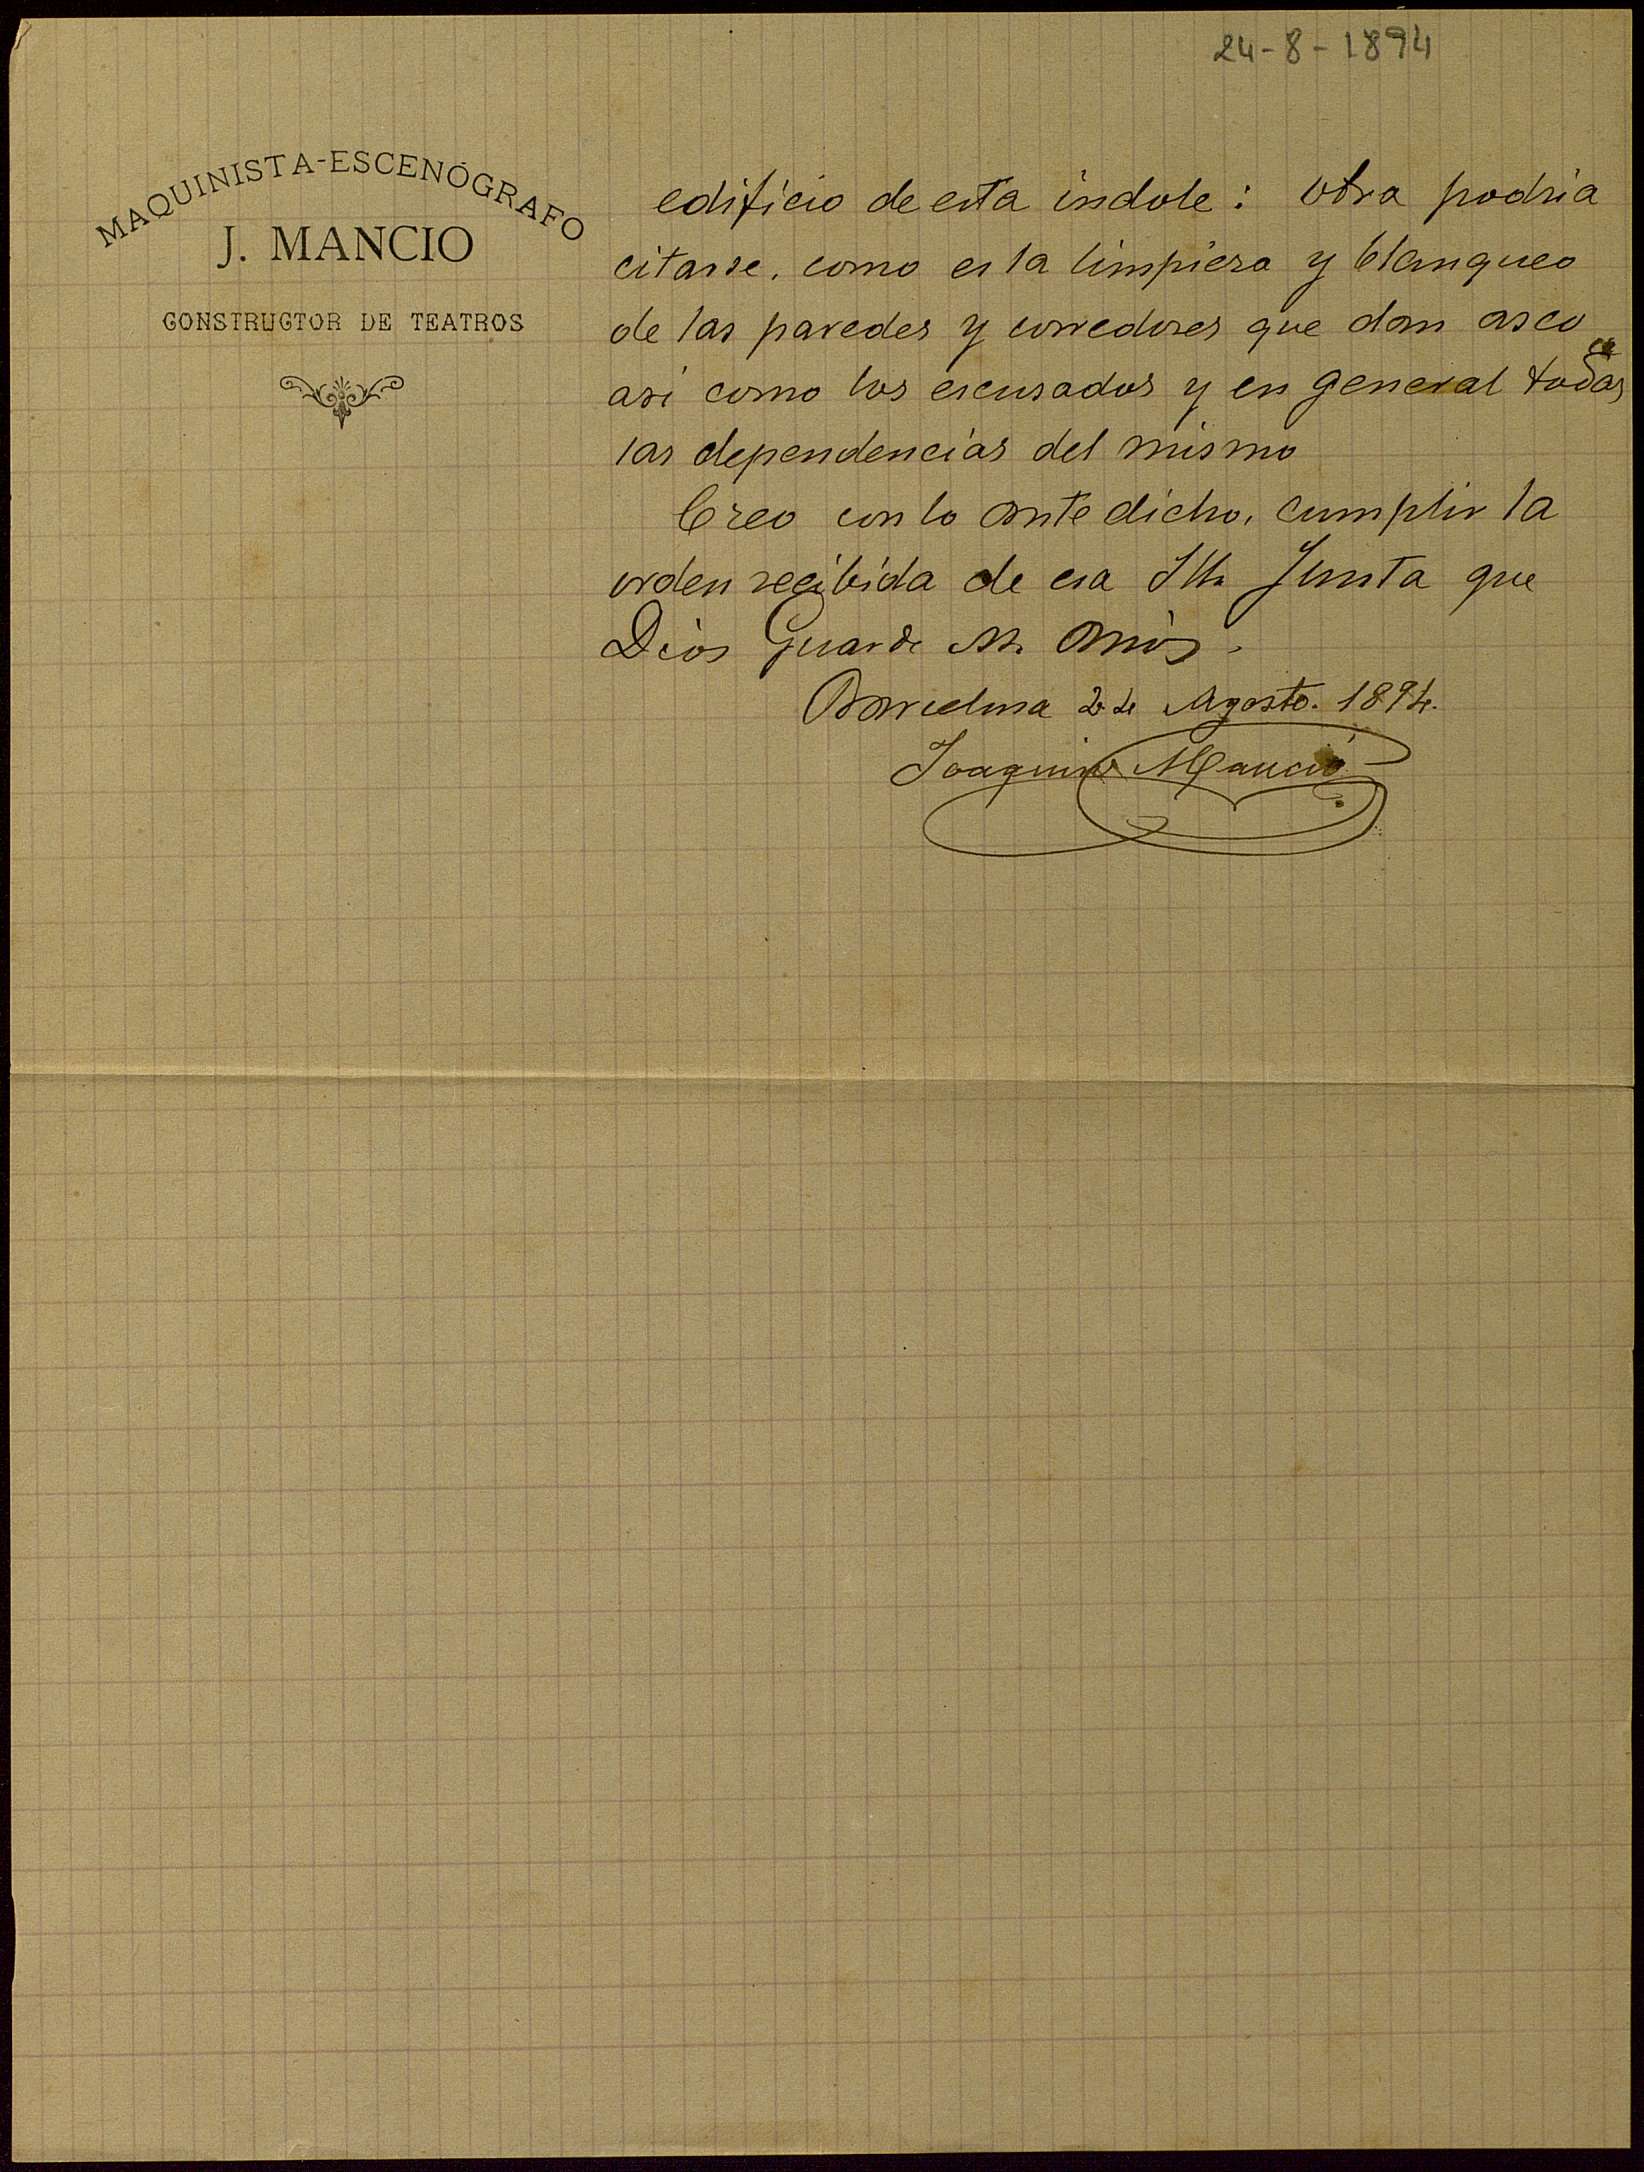 24-8-1894
MAQUINISTA-ESCENÓGRAFO
J. MANCIO
CONSTRUCTOR DE TEATROS
edificio de esta indole: otra podria
citarse, como es la limpieza y blanqueo
de las paredes y corredores que dan asco
asi como los escusados y en general todas
las dependencias del mismo
Creo con lo ante dicho, cumplir la
orden recibida de esa Ill. Junta que
Dios Guarde M. Años.
Barcelona 24 Agosto. 1894.
Joaquin Mancio